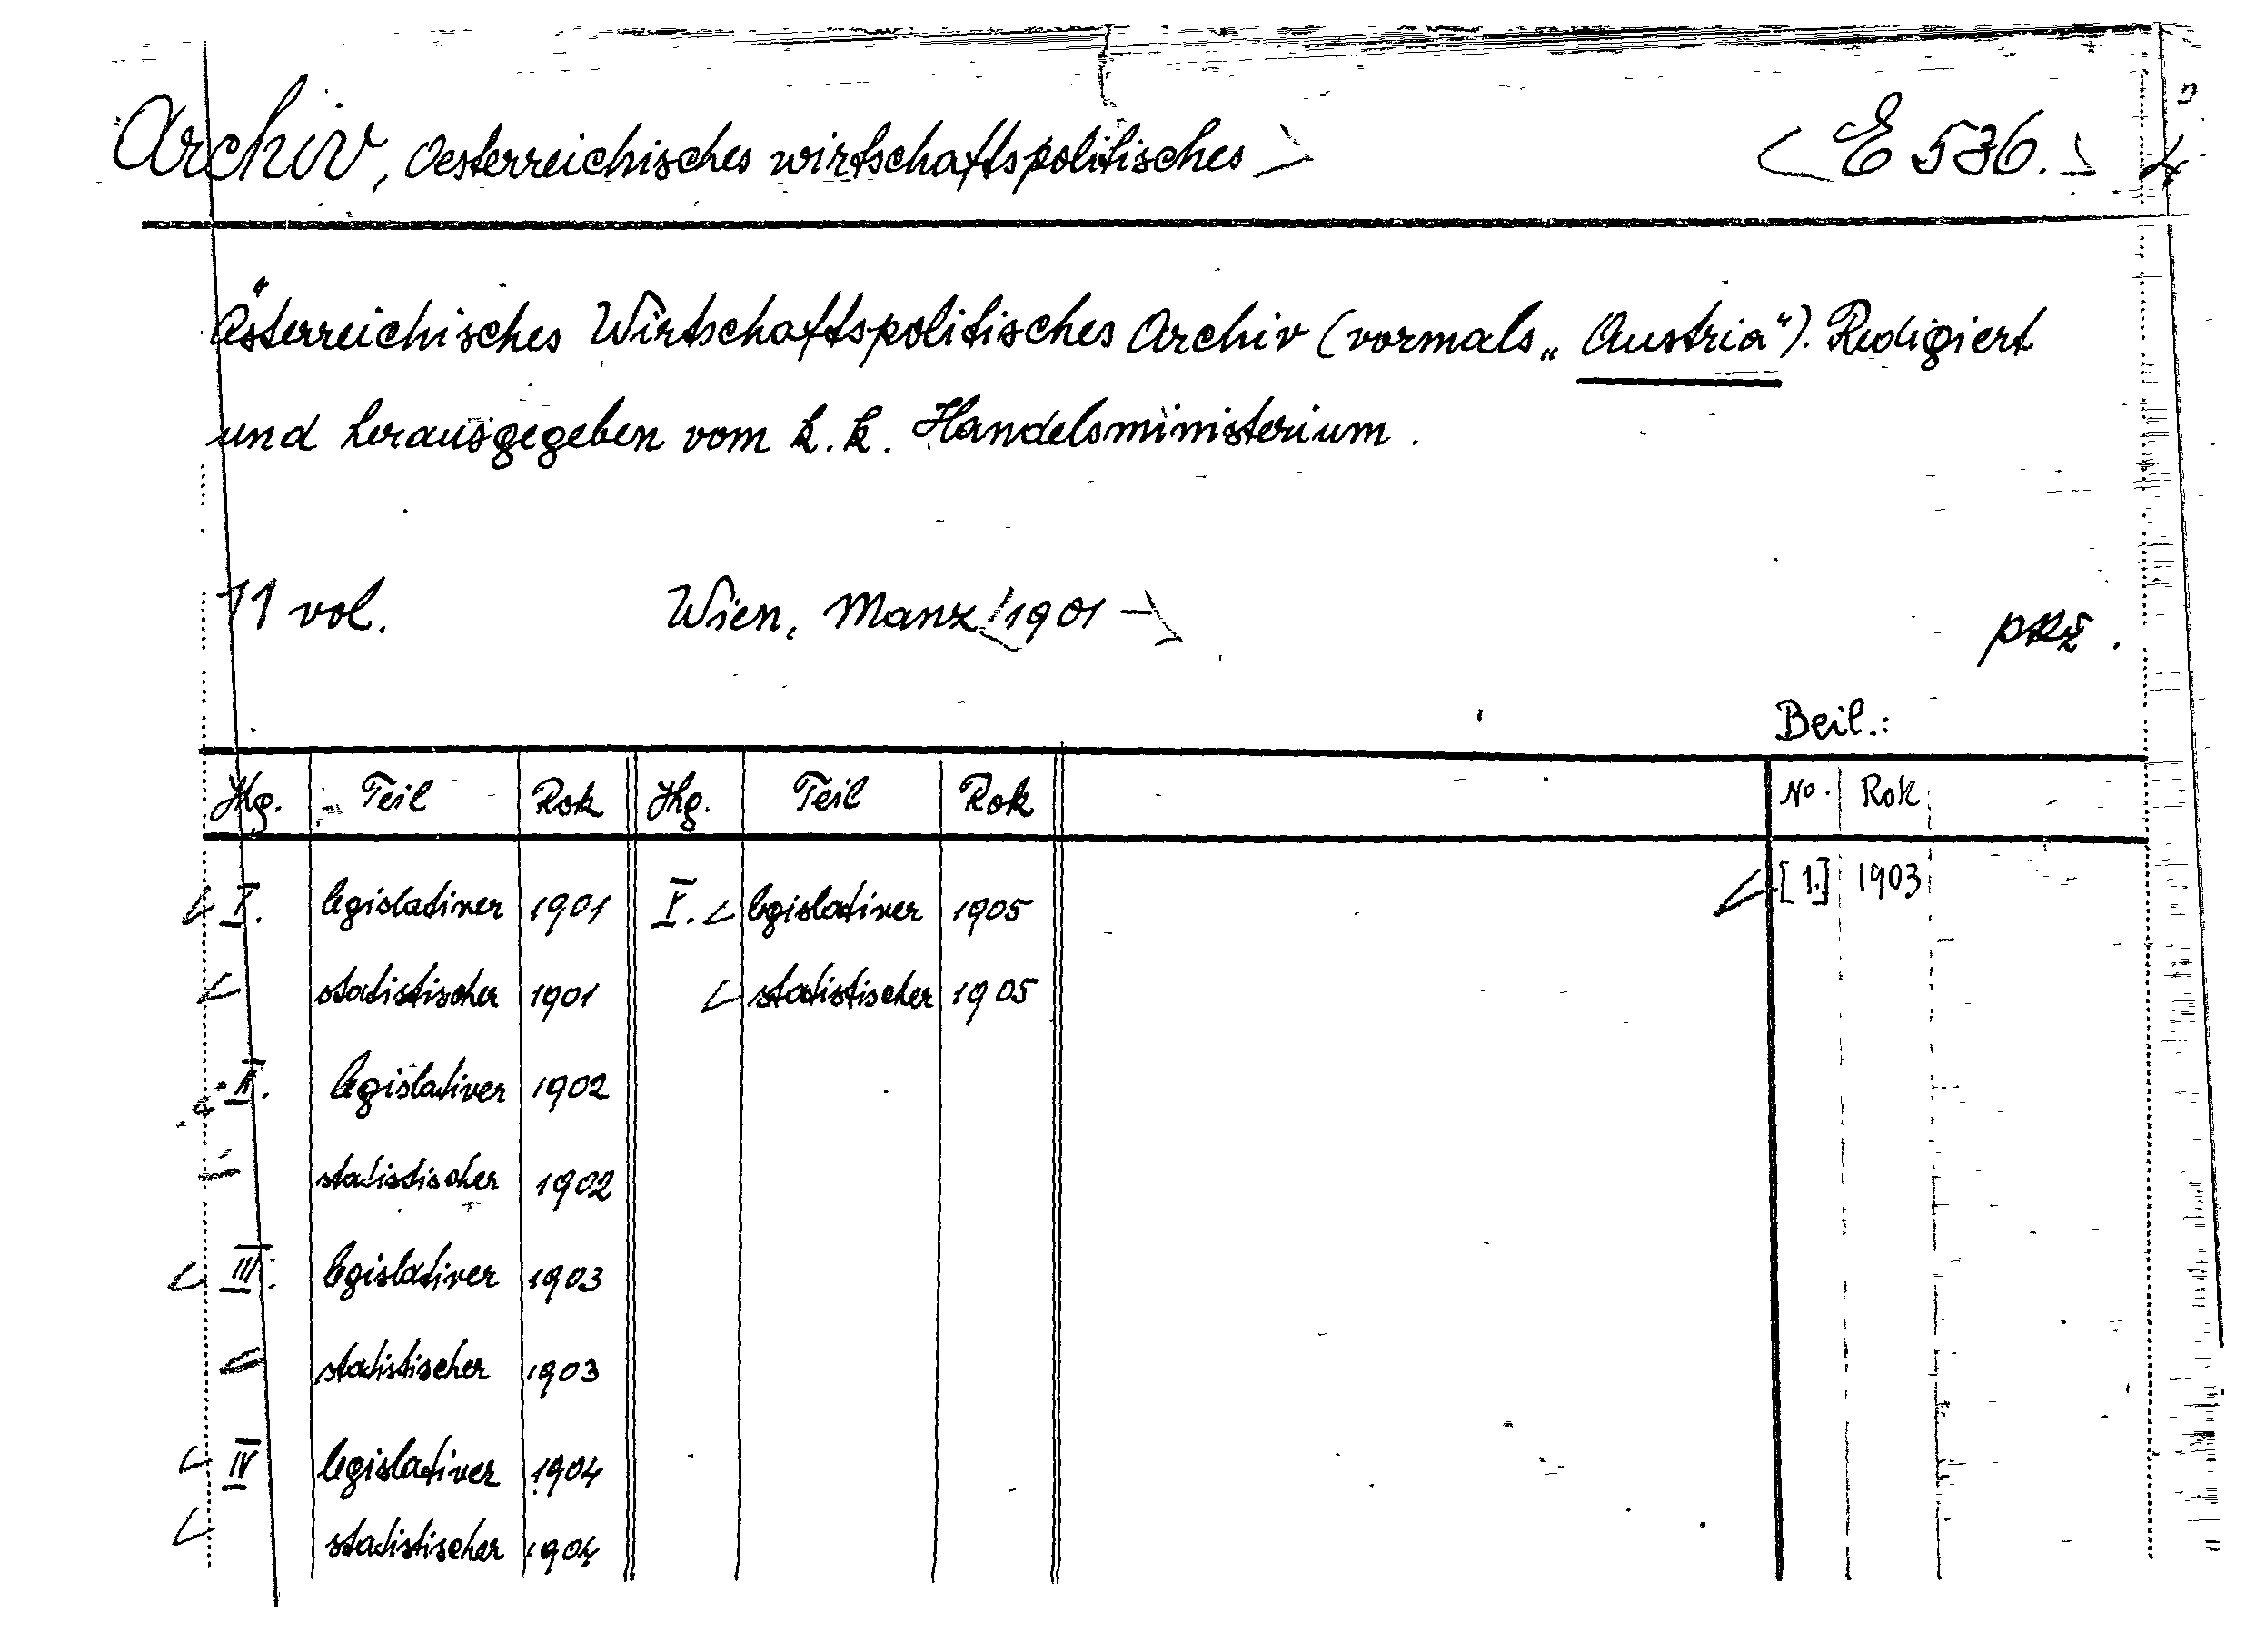 Archiv, Oesterreichisches wirtschaftspolitisches E 536.
Österreichisches Wirtschaftspolitisches Archiv (vormals „Austria“). Redigiert
und herausgegeben vom k.k. Handelsministerium.
11 vol. Wien, Manz 1901 –
Beil.:
Jhg. Teil Rok Jhg. Teil Rok No. Rok
I. legislativer 1901 V. legislativer 1905 [1.] 1903
statistischer 1901 statistischer 1905
II. legislativer 1902
statistischer 1902
III. legislativer 1903
statistischer 1903
IV legislativer 1904
statistischer 1904